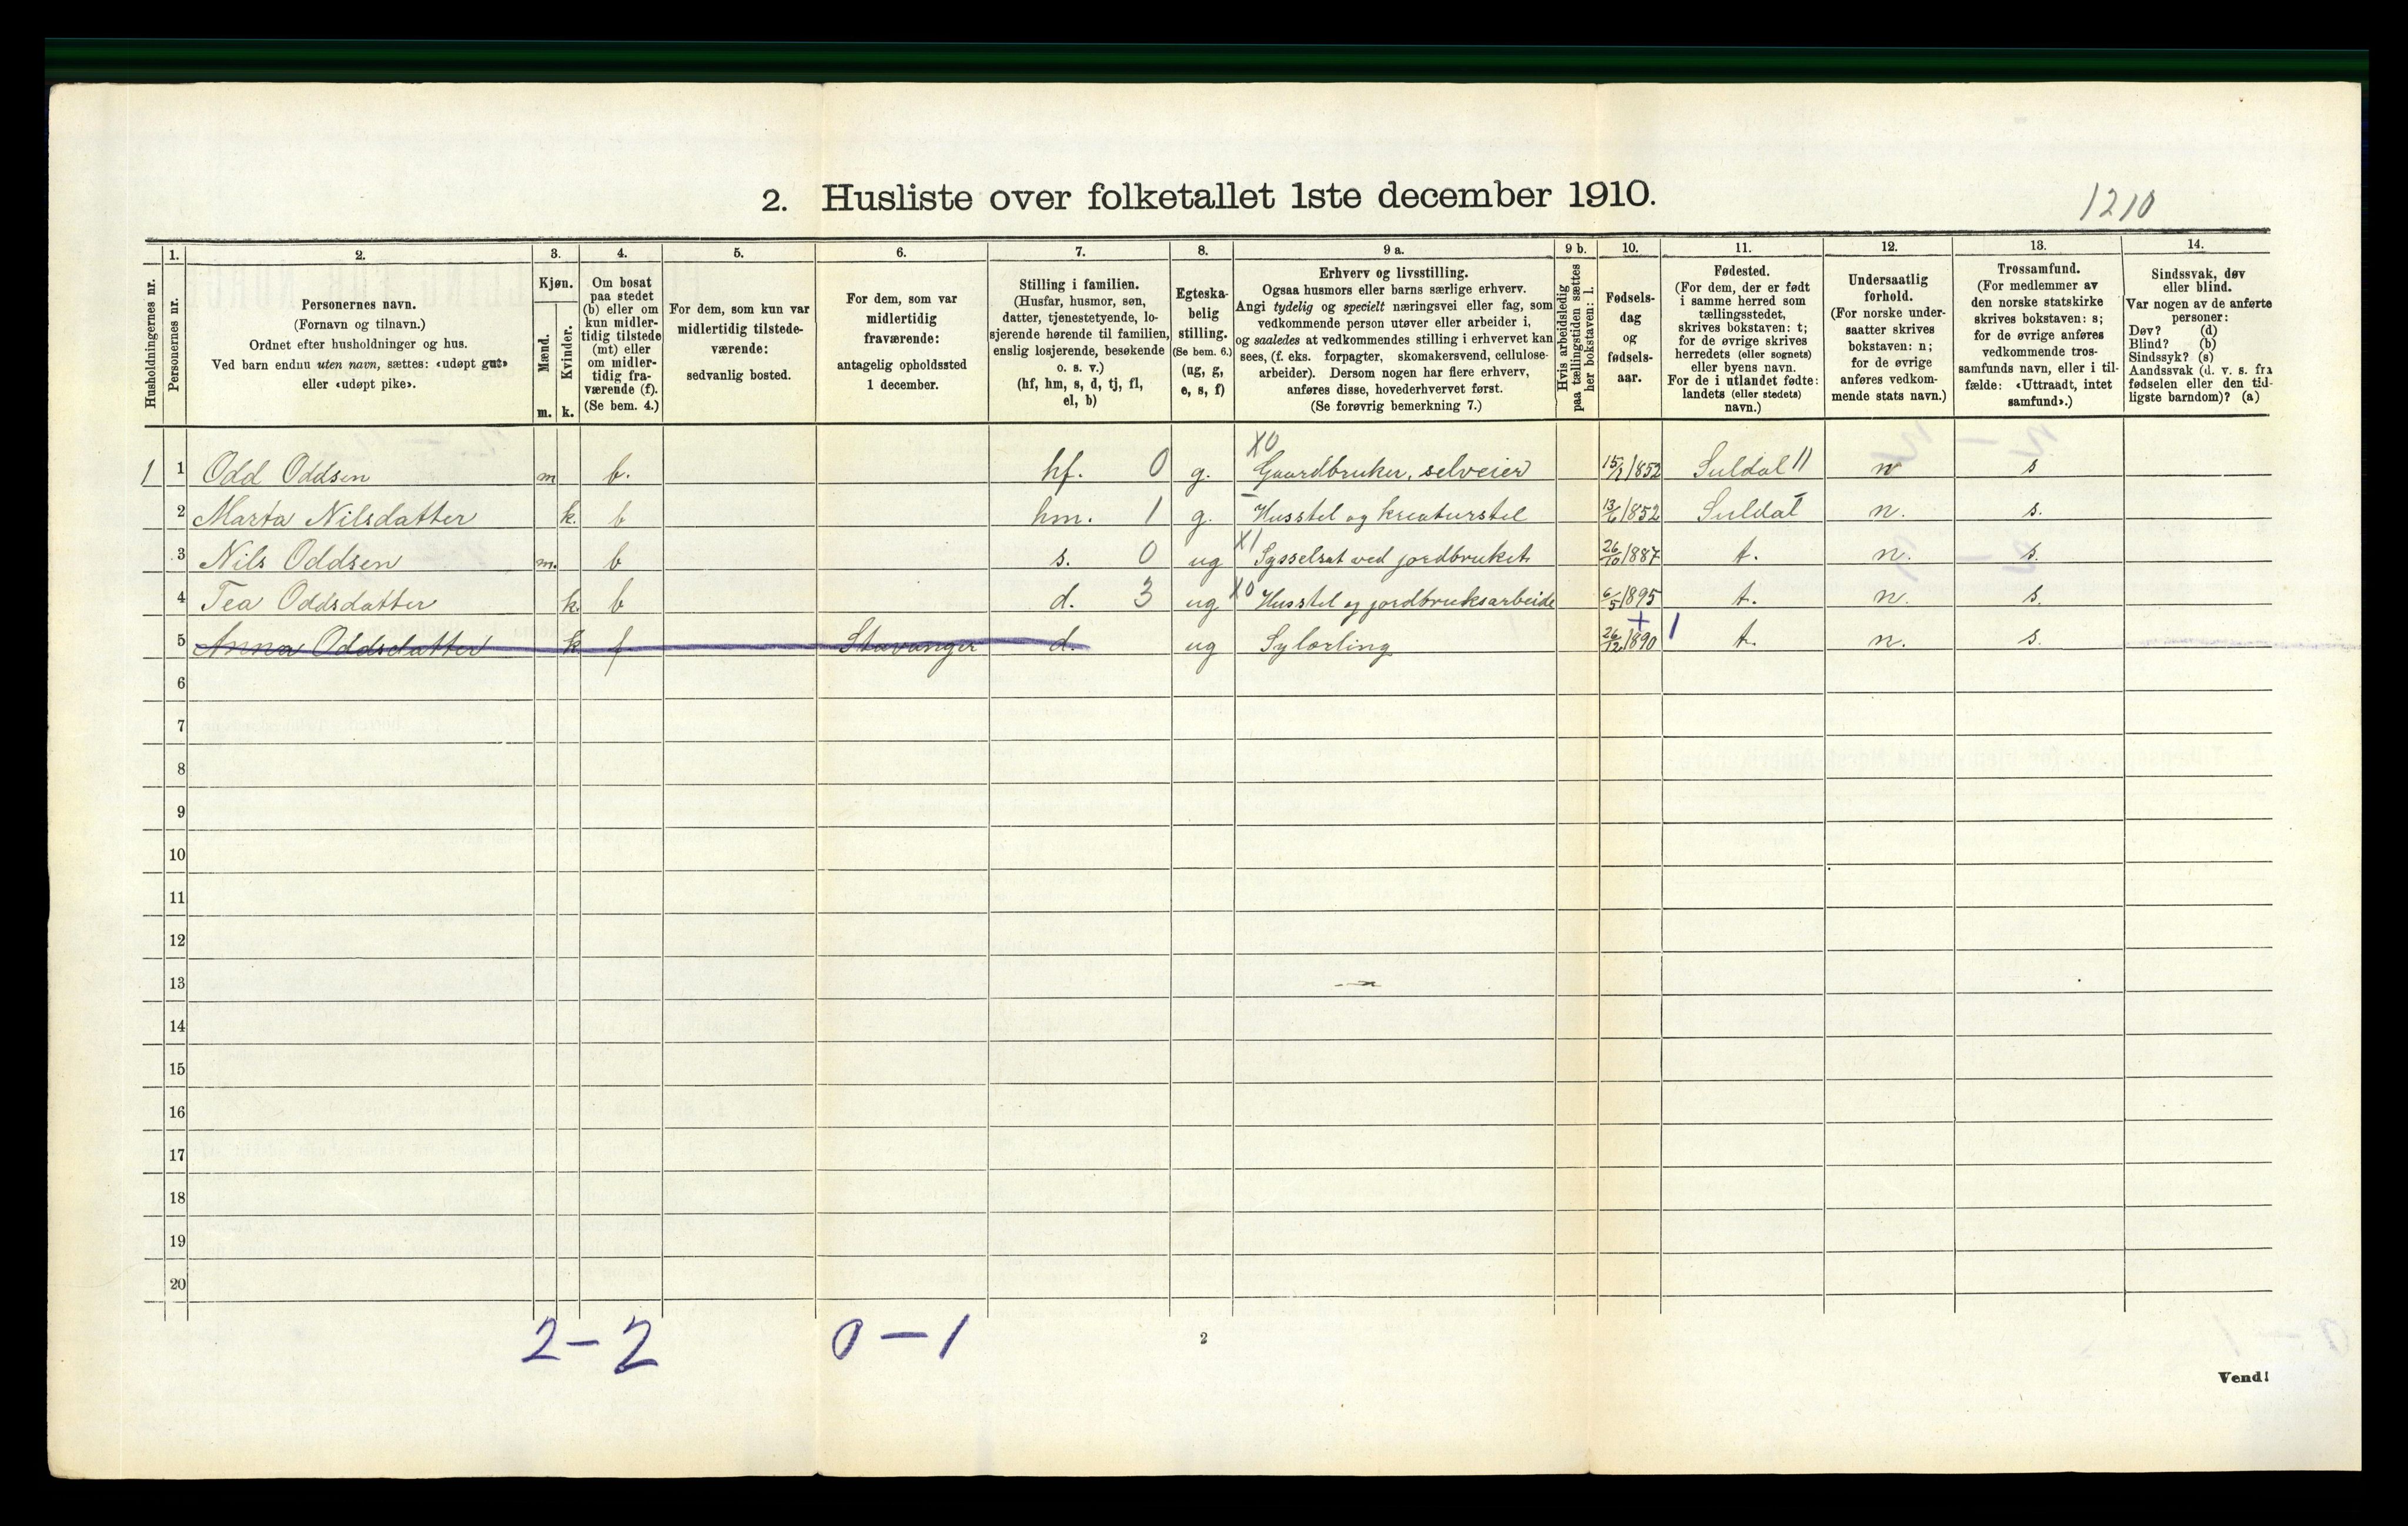 2. Husliste over folketallet 1ste december 1910.
1210
Husholdningernes nr.
1.
Personernes nr.
2.
Personernes navn.
(Fornavn og tilnavn.)
Ordnet efter husholdninger og hus.
Ved barn endnu uten navn, sættes: «udøpt gut»
eller «udøpt pike».
3.
Kjøn.
Mænd.
Kvinder.
m. k.
4.
Om bosat
paa stedet
(b) eller om
kun midler-
tidig tilstede
(mt) eller
om midler-
tidig fra-
værende (f).
(Se bem. 4.)
5.
For dem, som kun var
midlertidig tilstede-
værende:
sedvanlig bosted.
6.
For dem, som var
midlertidig
fraværende:
antagelig opholdssted
1 december.
7.
Stilling i familien.
(Husfar, husmor, søn,
datter, tjenestetyende, lo-
sjerende hørende til familien,
enslig losjerende, besøkende
o. s. v.)
(hf, hm, s, d, tj, fl,
el, b)
8.
Egteska-
belig
stilling.
(Se bem. 6.)
(ug, g,
e, s, f)
9 a.
Erhverv og livsstilling.
Ogsaa husmors eller barns særlige erhverv.
Angi tydelig og specielt næringsvei eller fag, som
vedkommende person utøver eller arbeider i,
og saaledes at vedkommendes stilling i erhvervet kan
sees, (f. eks. forpagter, skomakersvend, cellulose-
arbeider). Dersom nogen har flere erhverv,
anføres disse, hovederhvervet først.
(Se forøvrig bemerkning 7.)
9 b.
Hvis arbeidsledig
paa tællingstiden sættes
her bokstaven: l.
10.
Fødsels-
dag
og
fødsels-
aar.
11.
Fødested.
(For dem, der er født
i samme herred som
tællingsstedet,
skrives bokstaven: t;
for de øvrige skrives
herredets (eller sognets)
eller byens navn.
For de i utlandet fødte:
landets (eller stedets)
navn.)
12.
Undersaatlig
forhold.
(For norske under-
saatter skrives
bokstaven: n;
for de øvrige
anføres vedkom-
mende stats navn.)
13.
Trossamfund.
(For medlemmer av
den norske statskirke
skrives bokstaven: s;
for de øvrige anføres
vedkommende tros-
samfunds navn, eller i til-
fælde: «Uttraadt, intet
samfund».)
14.
Sindssvak, døv
eller blind.
Var nogen av de anførte
personer:
Døv? (d)
Blind? (b)
Sindssyk? (s)
Aandssvak (d. v. s. fra
fødselen eller den tid-
ligste barndom)? (a)
X0
1 1 Odd Oddsen m b. hf. 0 g. Gaardbruker, selveier 15/1 1852 Suldal 11 n s
2 Marta Nilsdatter k. b hm. 1 g. - Husstel og kreaturstel 13/6 1852 Suldal n. s.
3 Nils Oddsen m. b s. 0 ug X1 Sysselsat ved jordbruket 26/10 1887 t. n. s.
4 Tea Oddsdatter k. b d. 3 ug X0 Husstel og jordbruksarbeide 6/5 1895 t. n. s.
5 Anna Oddsdatter k f Stavanger d. ug Sylærling 26/12 1890 + 1 t. n. s.
6
7
8
9
10
11
12
13
14
15
16
17
18
19
20
2 - 2 0 - 1
2
Vend!